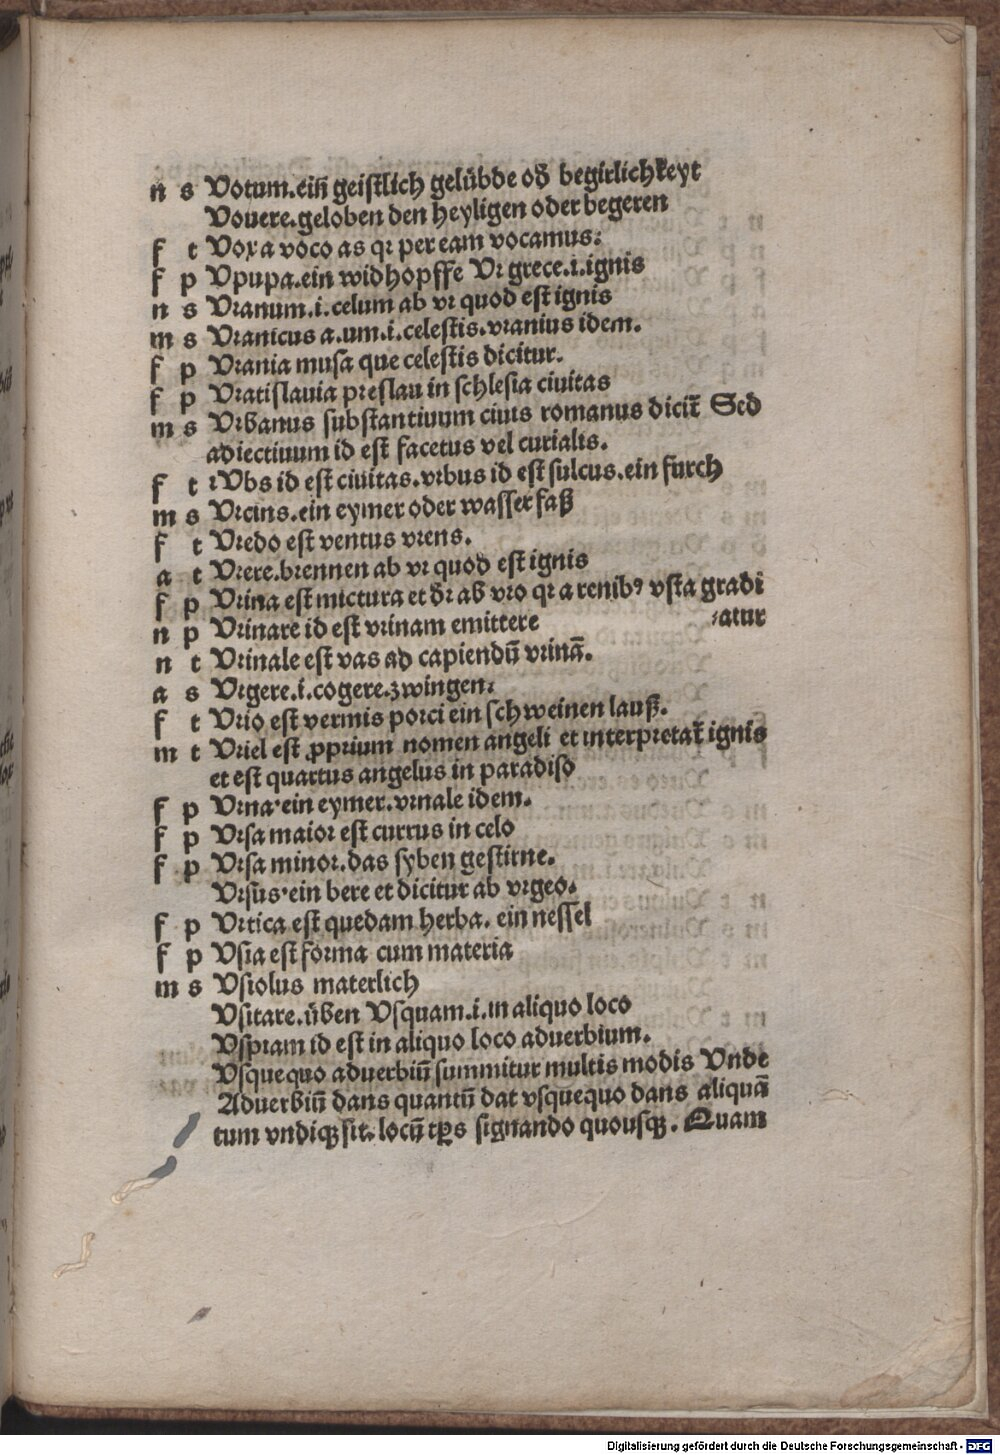 n s Votum.eiñ geistlich gelübde oď begirlichkeyt
Vouere.geloben den heyligen oder begeren
f t Vox a voco as qꝛ per eam vocamus:
f p Vpupa.ein widhopffe Vꝛ grece.i.ignis
n s Vꝛanum.i.celum ab vꝛ quod est ignis
m s Vꝛanicus a.um.i.celestis.vꝛanius idem.
f p Vꝛania musa que celestis dicitur.
f p Vꝛatislauia pꝛeslau in schlesia ciuitas
m s Vꝛbanus substantiuum ciuis romanus dicit̃ Sed
adiectiuum id est facetus vel curialis.
f t ꝛVbs id est ciuitas.vꝛbus id est sulcus.ein furch
m s Vꝛcius.ein eymer oder wasser faß
f t Vꝛedo est ventus vꝛens.
a t Vꝛere.bꝛennen ab vꝛ quod est ignis
f p Vꝛina est mictura et dꝛ ab vꝛo qꝛ a renibꝰ vsta gradi
n p Vꝛinare id est vꝛinam emittere ⸗atur
n t Vꝛinale est vas ad capiendū vꝛinã.
a s Vꝛgere.i.cogere.zwingen.
f t Vꝛio est vermis poꝛci ein schweinen lauß.
m t Vꝛiel est ꝓpꝛium nomen angeli et interpꝛetat̃ ignis
et est quartus angelus in paradiso
f p Vꝛna·ein eymer.vꝛnale idem.
f p Vꝛsa maioꝛ est currus in celo
f p Vꝛsa minoꝛ.das syben gestirne.
Vꝛsus·ein bere et dicitur ab vꝛgeo.
f p Vꝛtica est quedam herba. ein nessel
f p Vsia est foꝛma cum materia
m s Vsiolus materlich
Vsitare.üben Vsquam.i.in aliquo loco
Vspiam id est in aliquo loco aduerbium.
Vsquequo aduerbiū summitur multis modis Vnde
Aduerbiū dans quantū dat vsquequo dans aliquã
tum vndiqꝫ sit. locū tp̄s signando quousqꝫ. Quam
Digitalisierung gefördert durch die Deutsche Forschungsgemeinschaft - DFG